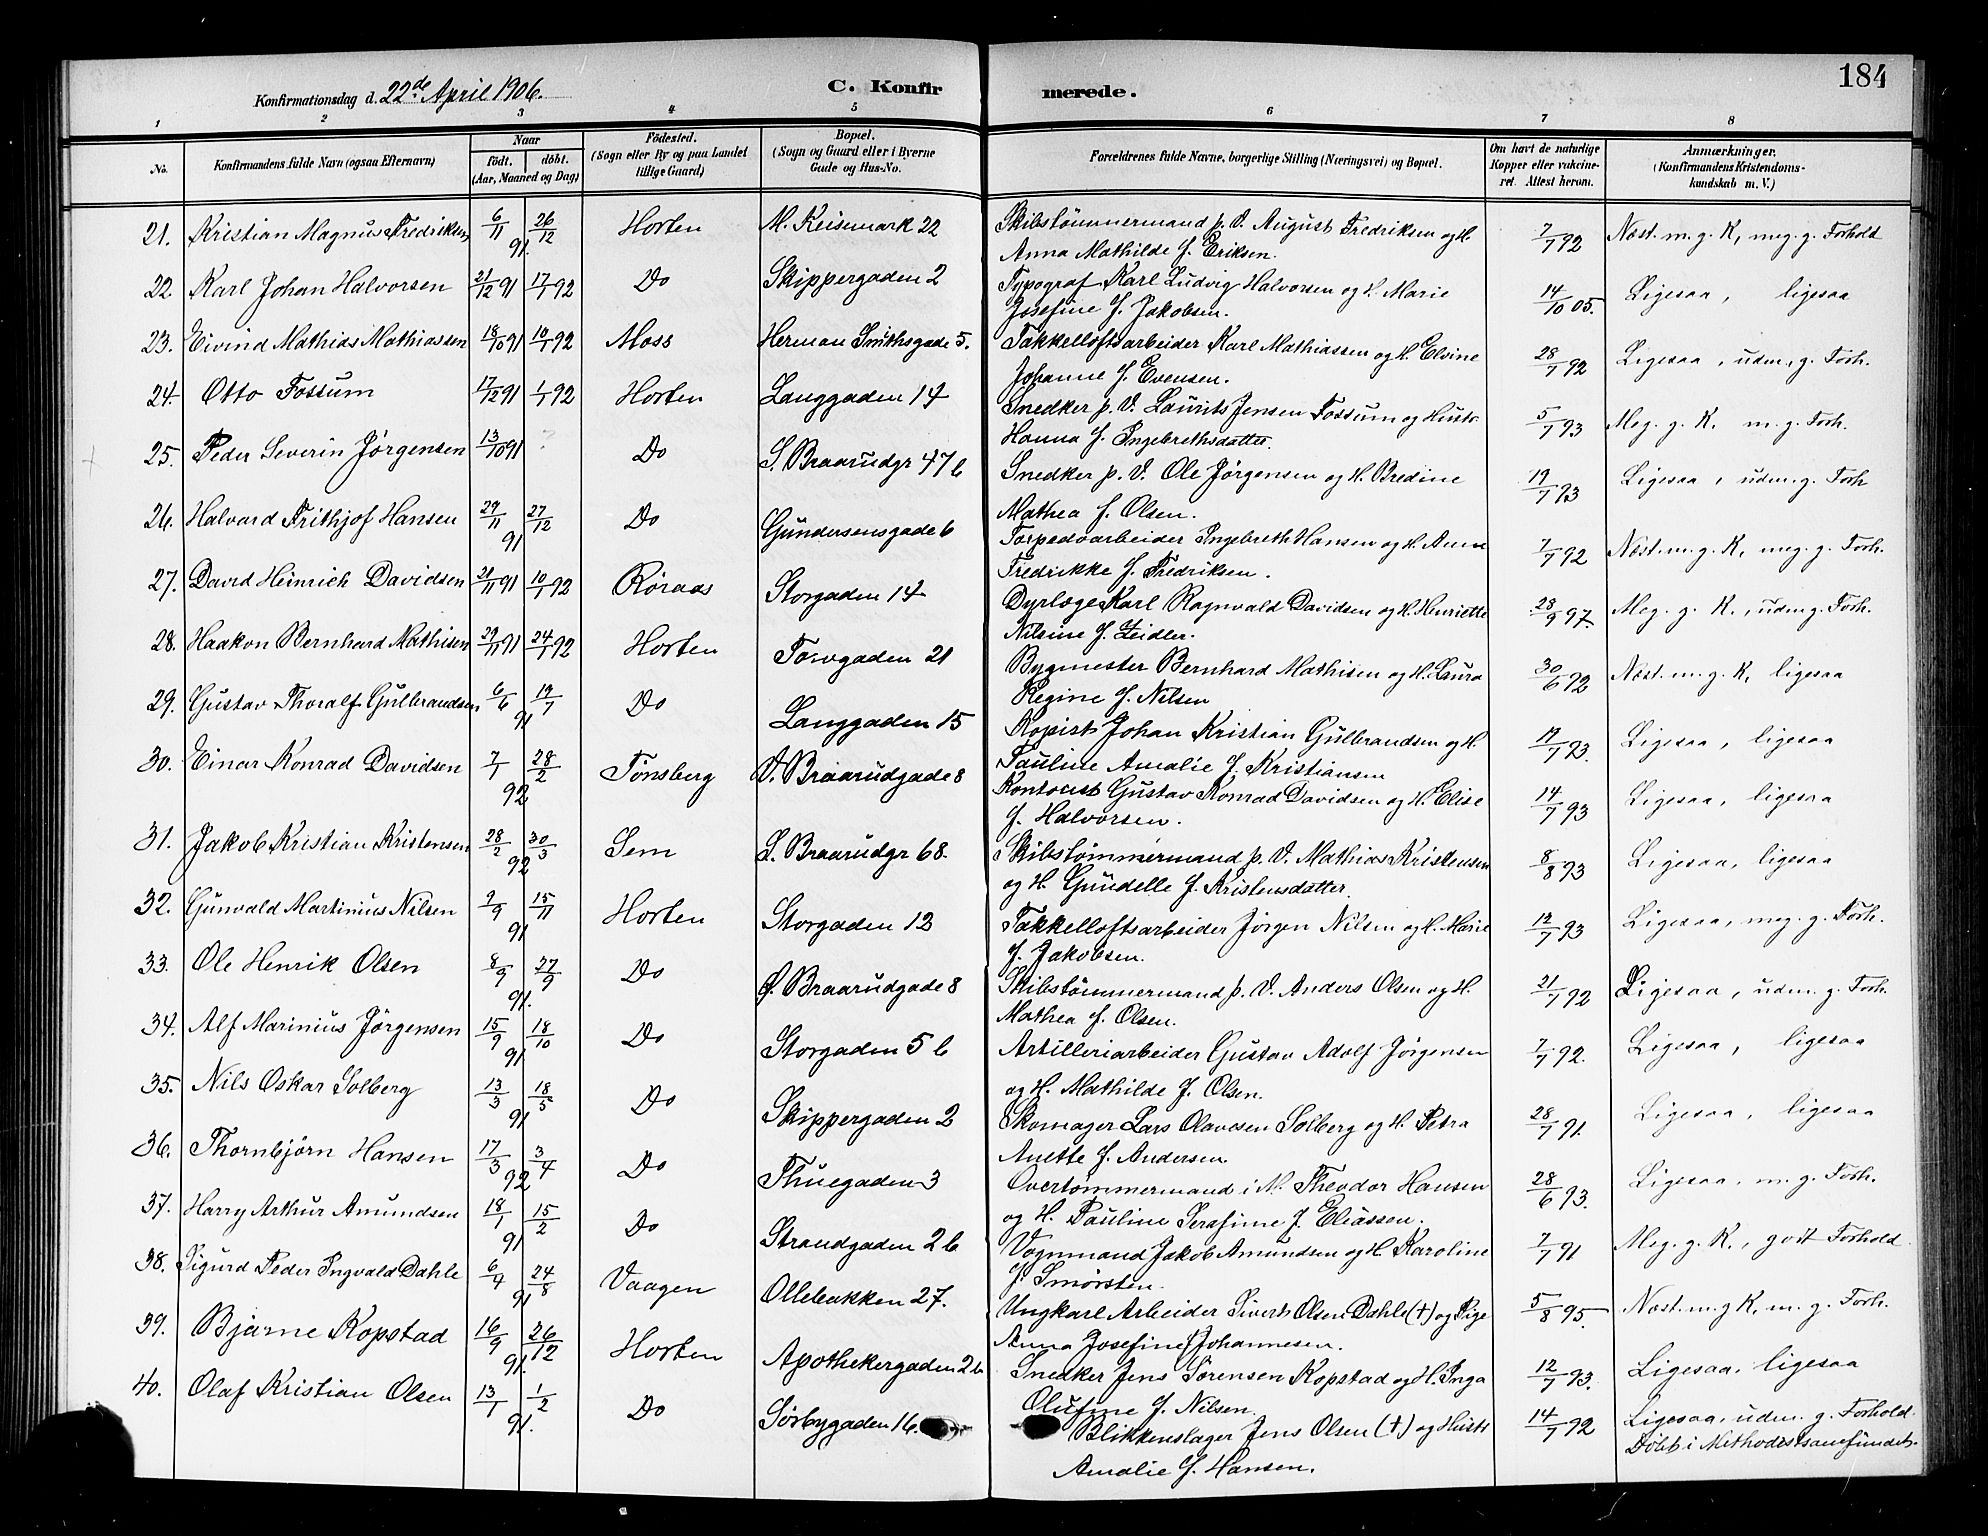 184
Konfirmationsdag d. 22de April 1906. C. Konfirmerede.
1 2 3 4 5 6 7 8
No. Konfirmandens fulde Navn (ogsaa Efternavn) Naar födt. döbt. (Aar, Maaned og Dag) Födested. (Sogn eller By og paa Landet tillige Gaard) Bopæl. (Sogn og Gaard eller i Byerne Gade og Hus-No. Forældrenes fulde Navne, borgerlige Stilling (Næringsvei) og Bopæl. Om havt de naturlige Kopper eller vakcineret. Attest herom. Anmærkninger. (Konfirmandens Kristendomskundskab m. V.)
21. Kristian Magnus Fredriksen 6/11 91. 26/12 Horten M. Keisemark 22 Skibstömmermand p. V. August Fredriksen og H. 7/7 92 Næst. m. g. K, meg. g. Forhold
Anna Mathilde f. Eriksen.
22. Karl Johan Halvorsen 21/12 91 17/1 92 Do Skippergaden 2 Typograf Karl Ludvig Halvorsen og H. Marie 14/10 05. Ligesaa, ligesaa
Josefine f. Jakobsen.
23. Eivind Mathias Mathiassen 18/10 91 10/1 92 Moss Herman Smithsgade 5. Takkelloftsarbeider Karl Mathiassen og H. Elvine 28/7 92 Ligesaa, udm. g. Forh.
Johanne f. Evensen.
24. Otto Fossum 17/12 91 1/1 92 Horten Langgaden 14 Snedker p. V. Laurits Jensen Fossum og Hustr 5/7 93 Meg. g. K. m. g. Forh.
Hanna f. Ingebrethsdatter.
25. Peder Severin Jörgensen 13/10 91 ? Do S. Braarudgr 47 b Snedker p. V. Ole Jörgensen og H. Bredine 19/7 93 Ligesaa, udm. g. Forh
Mathea f. Olsen.
26. Halvard Frithjof Hansen 29/11 91 27/12 Do Gundersensgade 6 Torpedoarbeider Ingebreth Hansen og H. Anna 7/7 92 Næst. m. g. K, meg. g. Forh.
Fredrikke f. Fredriksen.
27. David Heinrich Davidsen 21/11 91 10/1 92 Röraas Storgaden 14 Dyrlæge Karl Ragnvald Davidsen og H. Henriette 28/9 97. Meg. g. K., udm. g. Forh.
Nilsine f. Zeidler.
28. Haakon Bernhard Mathisen 29/11 91 24/1 92 Horten Torvgaden 21 Bygmester Bernhard Mathisen og H. Laura 30/6 92 Næst. m. g. K, ligesaa
Regine f. Nilsen
29. Gustav Thoralf Gulbrandsen 6/6 91 19/7 Do Langgaden 15 Kopist Johan Kristian Gulbrandsen og H. 19/7 93. Ligesaa, ligesaa
Pauline Amalie f. Kristiansen
30. Einar Konrad Davidsen 7/1 92 28/2 Tönsberg V. Braarudgade 8 Kontorist Gustav Konrad Davidsen og H. Elise 14/7 93 Ligesaa, ligesaa
f. Halvorsen.
31. Jakob Kristian Kristensen 28/2 92 30/3 Sem S. Braarudgr 68. Skibstömmermand p. V. Mathias Kristensen 8/8 93 Ligesaa, ligesaa
og H. Gundelle f. Kristensdatter.
32. Gunvald Martinius Nilsen 9/9 91 15/11 Horten Storgaden 12 Takkelloftsarbeider Jörgen Nilsen og H. Marie 12/7 93 Ligesaa, meg. g. Forh.
f. Jakobsen.
33. Ole Henrik Olsen 8/9 91. 27/9 Do Ö. Braarudgade 8 Skibstömmermand p. V. Anders Olsen og H. 21/7 92 Ligesaa, udm. g. Forh.
Mathea f. Olsen.
34. Alf Marinius Jörgensen 15/9 91 18/10 Do Storgaden 5 b Artilleriarbeider Gustav Adolf Jörgensen 7/7 92. Ligesaa, ligesaa
og H. Mathilde f. Olsen.
35. Nils Oskar Solberg 13/3 91 18/5 Do Skippergaden 2 Skomager Lars Olavesen Solberg og H. Petra 28/7 91. Ligesaa, ligesaa
Anette f. Andersen
36. Thornbjörn Hansen 17/3 92 3/4 Do Thuegaden 3 Overtömmermand i M. Theodor Hansen 28/6 93. Ligesaa, m. g. Forh.
og H. Pauline Serafime f. Eliassen.
37. Harry Arthur Amundsen 18/1 91 15/2 Do Strandgaden 2 b Vognmand Jakob Amundsen og H. Karoline 7/7 91 Meg. g. K., godt Forhold.
f. Smörsten.
38. Sigurd Peder Ingvald Dahle 6/7 91 24/8 Vaagen Ollebakken 27. Ungkarl Arbeider Siverts Olsen Dahle (†) og Pige 5/8 95. Næst. m. g. K, m. g. Forh.
Anna Josefine Johannesen.
39. Bjarne Kopstad 16/9 91. 26/12 Horten Apothekergaden 2 b Snedker Jens Sörensen Kopstad og H. Inga 12/7 93. Ligesaa. ligesaa
Olufine f. Nilsen.
40. Olaf Kristian Olsen 13/1 91. 1/2 Do Sörbygaden 16. Blikkenslager Jens Olsen (†) og Hustr 14/7 92 Ligesaa, udm. g. Forhold.
Amalie f. Hansen. Döbt i Methodistsamfundet.